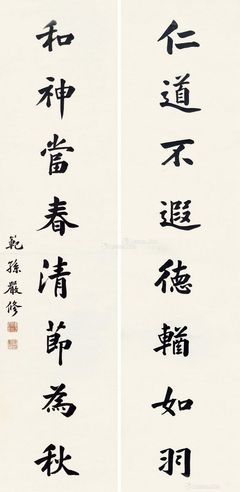 仁道不遐德輶如羽
和神當春清節為秋
範孫嚴修